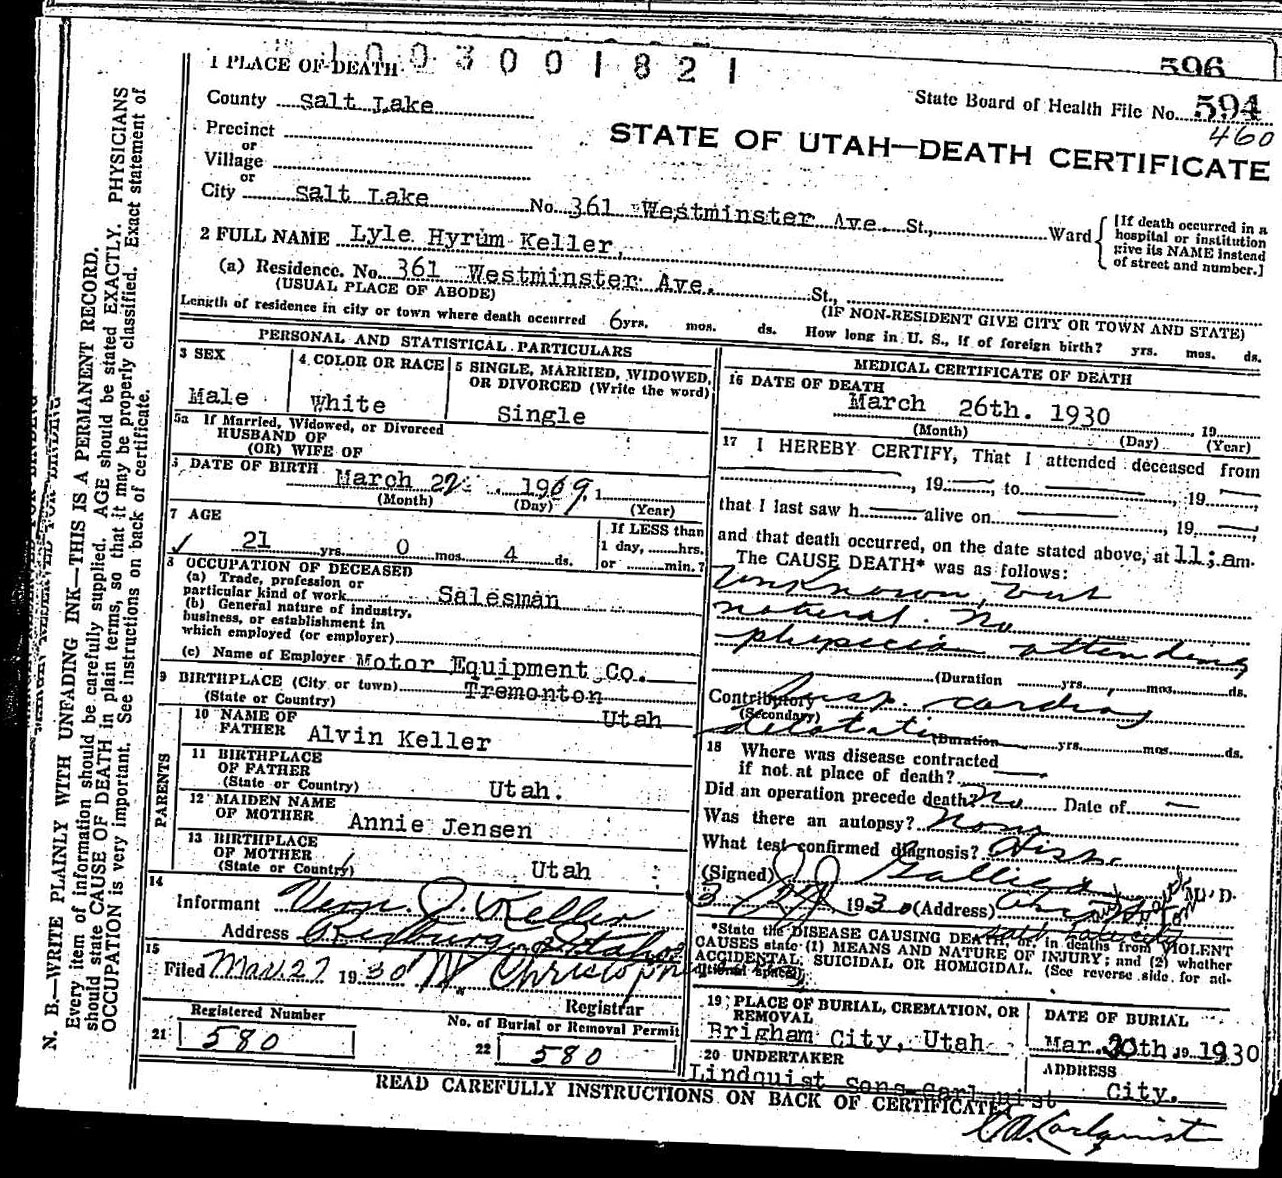 1003001821
596
1 PLACE OF DEATH
County Salt Lake
State Board of Health File No. 594
460
Precinct
or
Village
or
STATE OF UTAH—DEATH CERTIFICATE
City Salt Lake No. 361 Westminster Ave. St., Ward
[If death occurred in a hospital or institution give its NAME instead of street and number.]
2 FULL NAME Lyle Hyrum Keller,
(a) Residence. No. 361 Westminster Ave. St.,
(USUAL PLACE OF ABODE)
(IF NON-RESIDENT GIVE CITY OR TOWN AND STATE)
Length of residence in city or town where death occurred 6 yrs. mos. ds. How long in U. S., if of foreign birth? yrs. mos. ds.
PERSONAL AND STATISTICAL PARTICULARS
3 SEX
Male
4 COLOR OR RACE
White
5 SINGLE, MARRIED, WIDOWED, OR DIVORCED (Write the word)
Single
5a If Married, Widowed, or Divorced
HUSBAND OF
(OR) WIFE OF
DATE OF BIRTH March 22 1909
(Month) (Day) (Year)
7 AGE
21 yrs. 0 mos. 4 ds.
If LESS than
1 day, hrs.
or min.?
8 OCCUPATION OF DECEASED
(a) Trade, profession or
particular kind of work Salesman
(b) General nature of industry,
business, or establishment in
which employed (or employer)
(c) Name of Employer Motor Equipment Co.
9 BIRTHPLACE (City or town) Tremonton
(State or Country) Utah
PARENTS
10 NAME OF
FATHER Alvin Keller
11 BIRTHPLACE
OF FATHER
(State or Country) Utah.
12 MAIDEN NAME
OF MOTHER Annie Jensen
13 BIRTHPLACE
OF MOTHER
(State or Country) Utah
14
Informant Vern J. Keller
Address Rexburg Idaho
15
Filed Mar 27 1930
Registrar
Registered Number
21 580
No. of Burial or Removal Permit
22 580
MEDICAL CERTIFICATE OF DEATH
16 DATE OF DEATH
March 26th. 1930 19
(Month) (Day) (Year)
17 I HEREBY CERTIFY, That I attended deceased from
, 19 , to , 19
that I last saw h alive on , 19
and that death occurred, on the date stated above, at 11;am.
The CAUSE DEATH* was as follows:
Unknown, but
natural. No
physician attending
(Duration yrs. mos. ds.
Contributory cardiac
(Secondary)
(Duration yrs. mos. ds.
18 Where was disease contracted
if not at place of death?
Did an operation precede death? No Date of —
Was there an autopsy? None
What test confirmed diagnosis?
(Signed) M. D.
3 1930 (Address)
*State the DISEASE CAUSING DEATH, or, in deaths from VIOLENT
CAUSES state (1) MEANS AND NATURE OF INJURY; and (2) whether
ACCIDENTAL, SUICIDAL OR HOMICIDAL. (See reverse side for ad-
ditional space.)
19 PLACE OF BURIAL, CREMATION, OR REMOVAL
Brigham City, Utah
DATE OF BURIAL
Mar. 30th, 19 1930
20 UNDERTAKER
Lindquist Sons Carlquist
ADDRESS
City.
READ CAREFULLY INSTRUCTIONS ON BACK OF CERTIFICATE
Carlquist
N. B.—WRITE PLAINLY WITH UNFADING INK—THIS IS A PERMANENT RECORD.
Every item of information should be carefully supplied. AGE should be stated EXACTLY. PHYSICIANS
should state CAUSE OF DEATH in plain terms, so that it may be properly classified. Exact statement of
OCCUPATION is very important. See instructions on back of certificate.